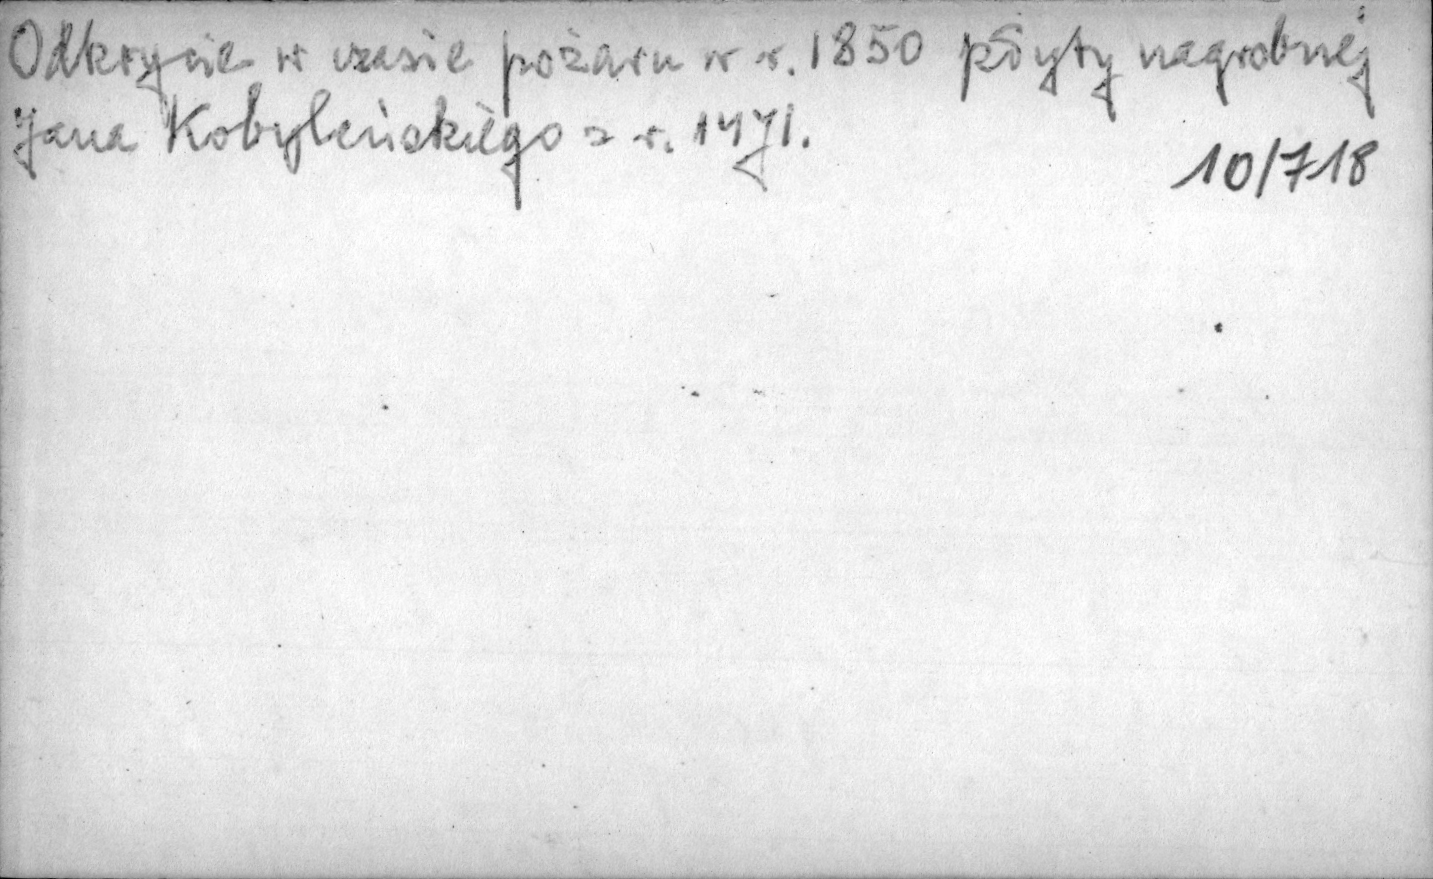 Odkrycie w czasie pożaru w r. 1850 płyty nagrobnej
Jana Kobyleńskiego z r. 1471.
10/718